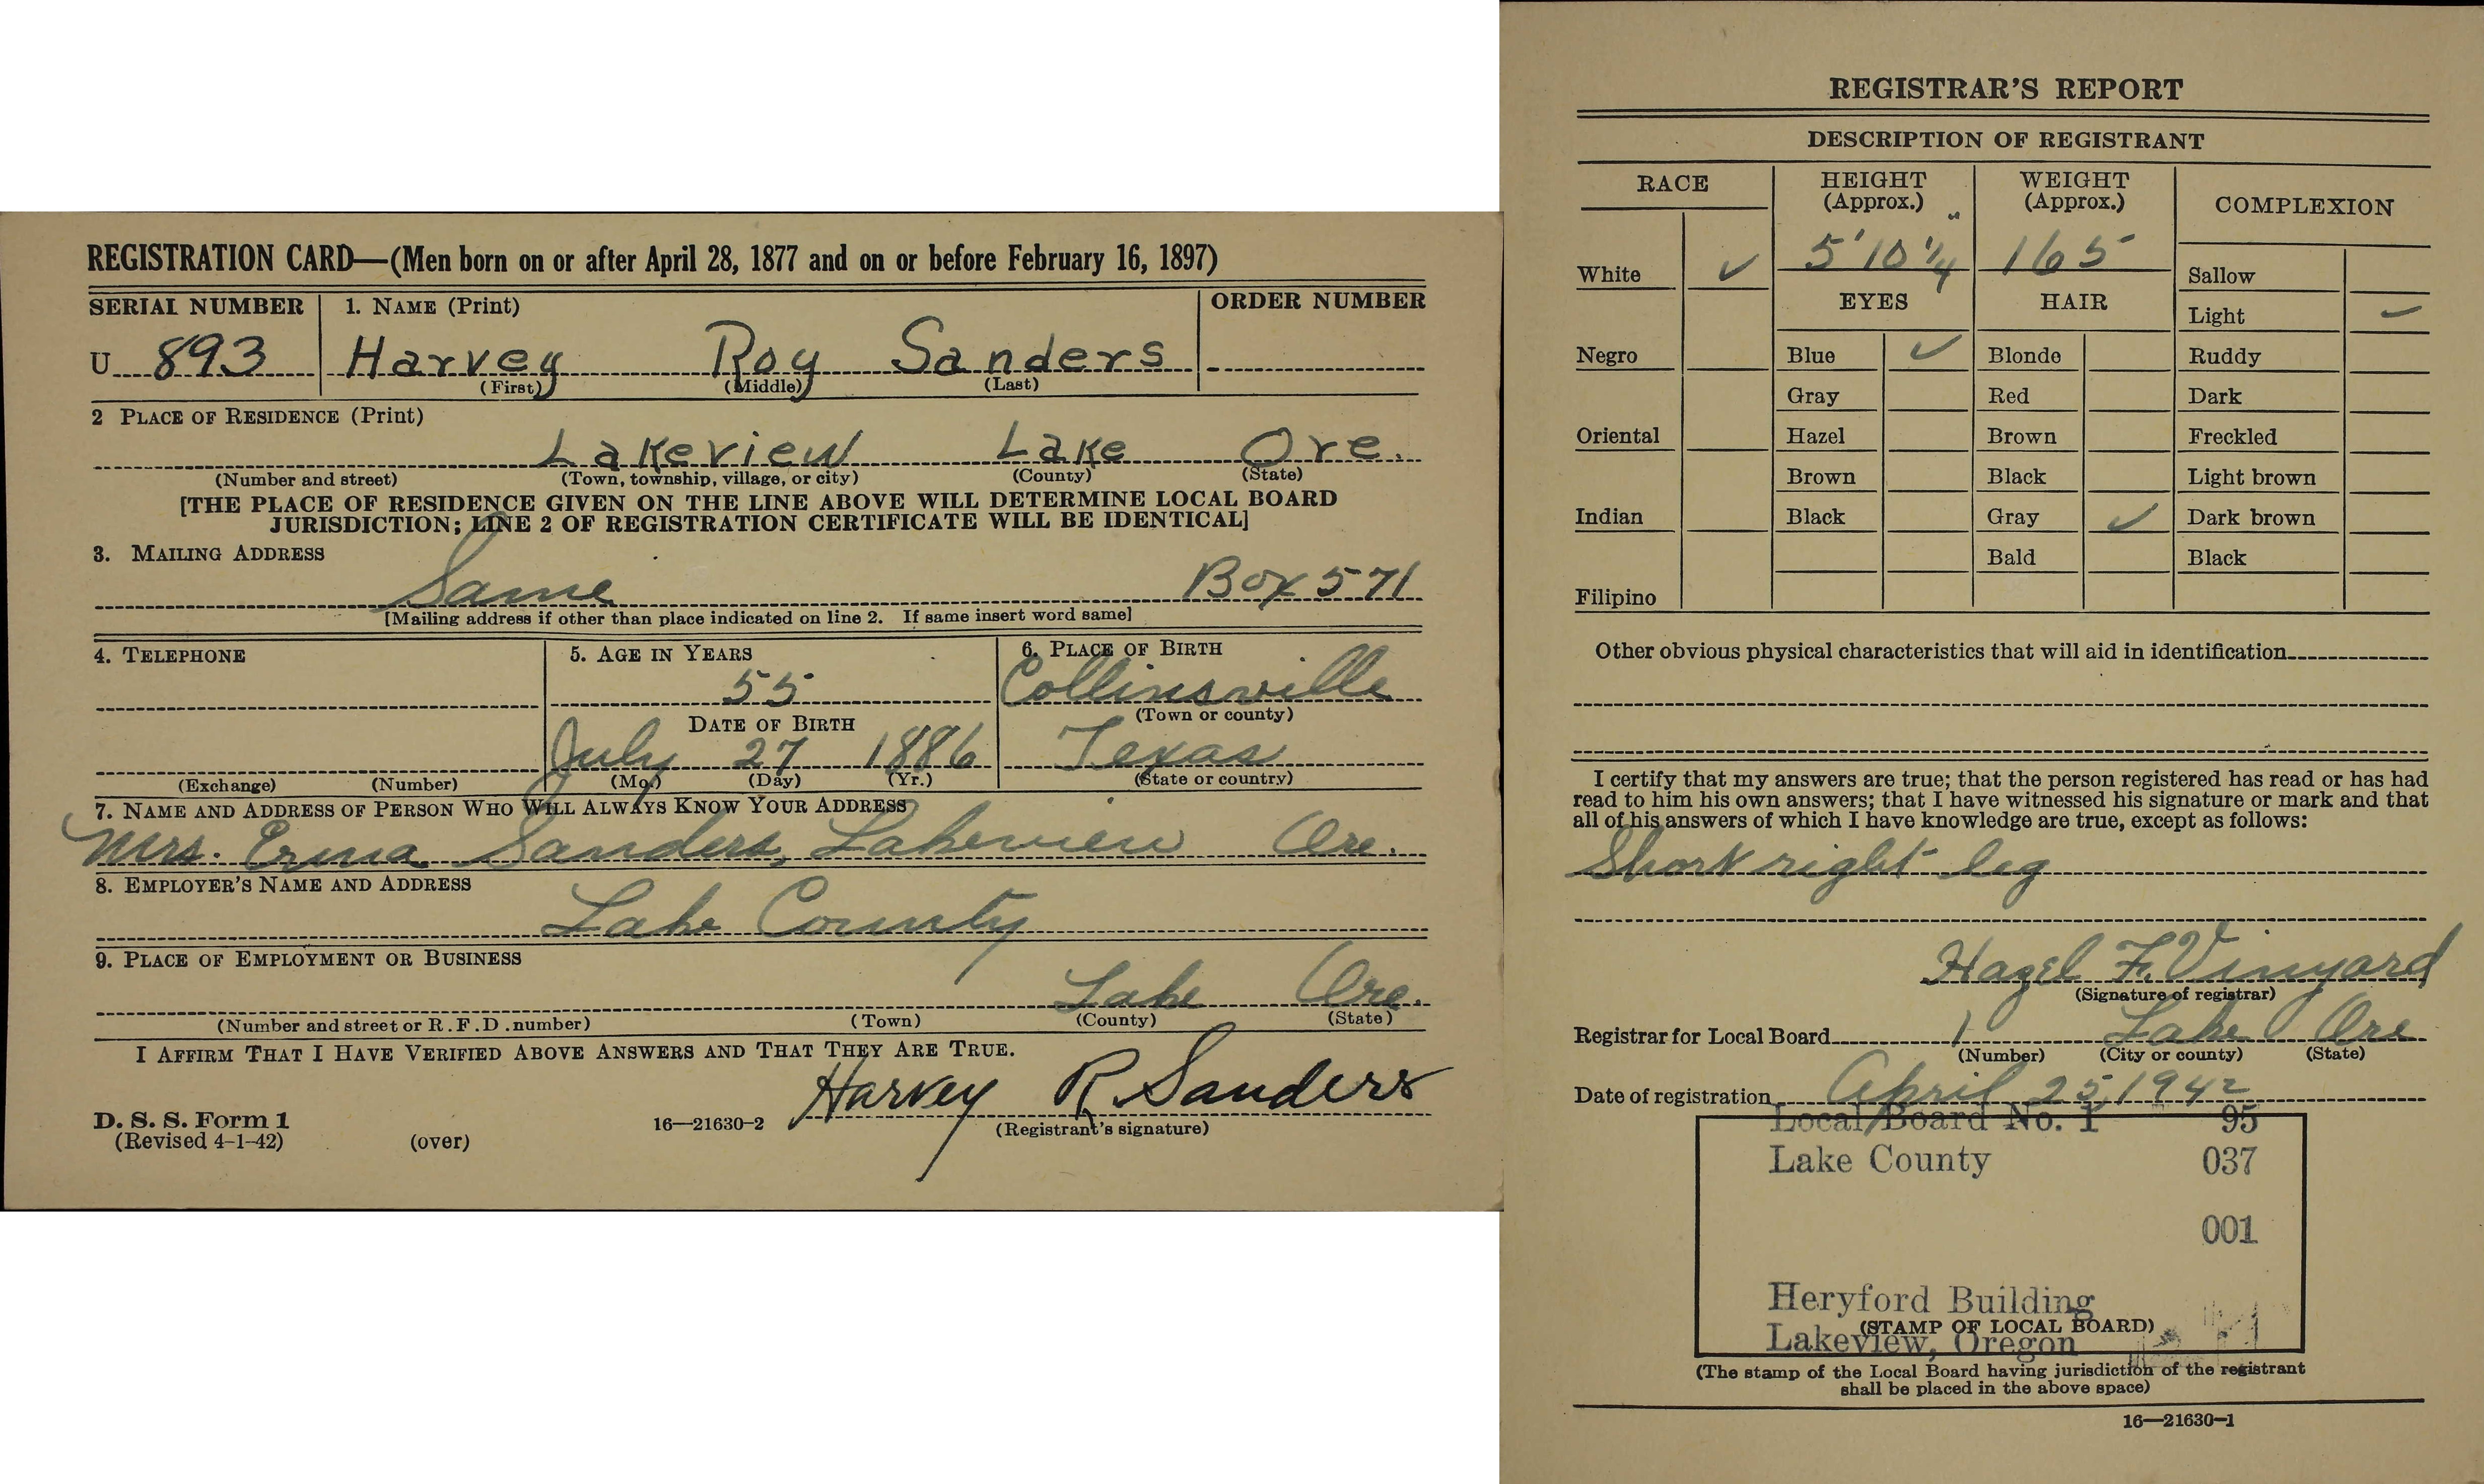 REGISTRATION CARD—(Men born on or after April 28, 1877 and on or before February 16, 1897)
SERIAL NUMBER 1. NAME (Print) ORDER NUMBER
U 893 Harvey Roy Sanders
(First) (Middle) (Last)
2 PLACE OF RESIDENCE (Print)
Lakeview Lake Ore.
(Number and street) (Town, township, village, or city) (County) (State)
[THE PLACE OF RESIDENCE GIVEN ON THE LINE ABOVE WILL DETERMINE LOCAL BOARD
JURISDICTION; LINE 2 OF REGISTRATION CERTIFICATE WILL BE IDENTICAL]
3. MAILING ADDRESS
Same Box 571
[Mailing address if other than place indicated on line 2. If same insert word same]
4. TELEPHONE 5. AGE IN YEARS 6. PLACE OF BIRTH
55 Collinsville
(Town or county)
DATE OF BIRTH
July 27 1886 Texas
(Exchange) (Number) (Mo.) (Day) (Yr.) (State or country)
7. NAME AND ADDRESS OF PERSON WHO WILL ALWAYS KNOW YOUR ADDRESS
Mrs. Erma Sanders, Lakeview Ore.
8. EMPLOYER'S NAME AND ADDRESS
Lake County
9. PLACE OF EMPLOYMENT OR BUSINESS
Lake Ore.
(Number and street or R.F.D. number) (Town) (County) (State)
I AFFIRM THAT I HAVE VERIFIED ABOVE ANSWERS AND THAT THEY ARE TRUE.
Harvey R Sanders
D. S. S. Form 1
(Revised 4-1-42) (over) 16—21630-2 (Registrant's signature)
REGISTRAR'S REPORT
DESCRIPTION OF REGISTRANT
RACE HEIGHT (Approx.) WEIGHT (Approx.) COMPLEXION
White ✓ 5'10 1/4" 165 Sallow
EYES HAIR Light ✓
Negro Blue ✓ Blonde Ruddy
Gray Red Dark
Oriental Hazel Brown Freckled
Brown Black Light brown
Indian Black Gray ✓ Dark brown
Bald Black
Filipino
Other obvious physical characteristics that will aid in identification
I certify that my answers are true; that the person registered has read or has had
read to him his own answers; that I have witnessed his signature or mark and that
all of his answers of which I have knowledge are true, except as follows:
Short right leg
Hazel F. Vinyard
(Signature of registrar)
Registrar for Local Board 1 Lake Ore
(Number) (City or county) (State)
Date of registration April 25, 1942
Local Board No. 1 95
Lake County 037
001
Heryford Building
(STAMP OF LOCAL BOARD)
Lakeview, Oregon
(The stamp of the Local Board having jurisdiction of the registrant
shall be placed in the above space)
16—21630-1